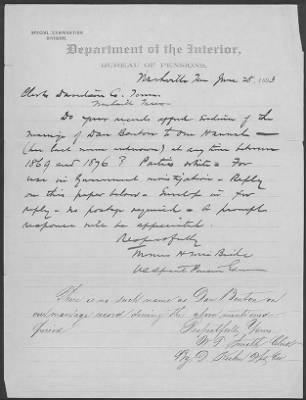 SPECIAL EXAMINATION
DIVISION.
Department of the Interior,
BUREAU OF PENSIONS,
Nashville Tenn June 28, 1893
Clerk Davidson Co. Tenn.
Nashville Tenn.
Do your records afford evidence of the
marriage of Dan Benton to One Hannah —
(her last name unknown) at any time between
1869 and 1876? Parties white — For
use in Government investigation — Reply
on this paper below — Envelop is for
reply — No postage required — A prompt
response will be appreciated.
Respectfully
U.S. Special Pension Exam
There is no such name as Dan Benton on
our marriage record during the above mentioned
period
Respectfully Yours
W T Smith Clerk
By D.